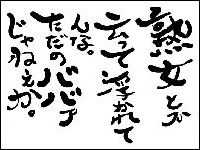 熟女とか
云って浮かれて
んな。
ただのババア
じゃねぇか。